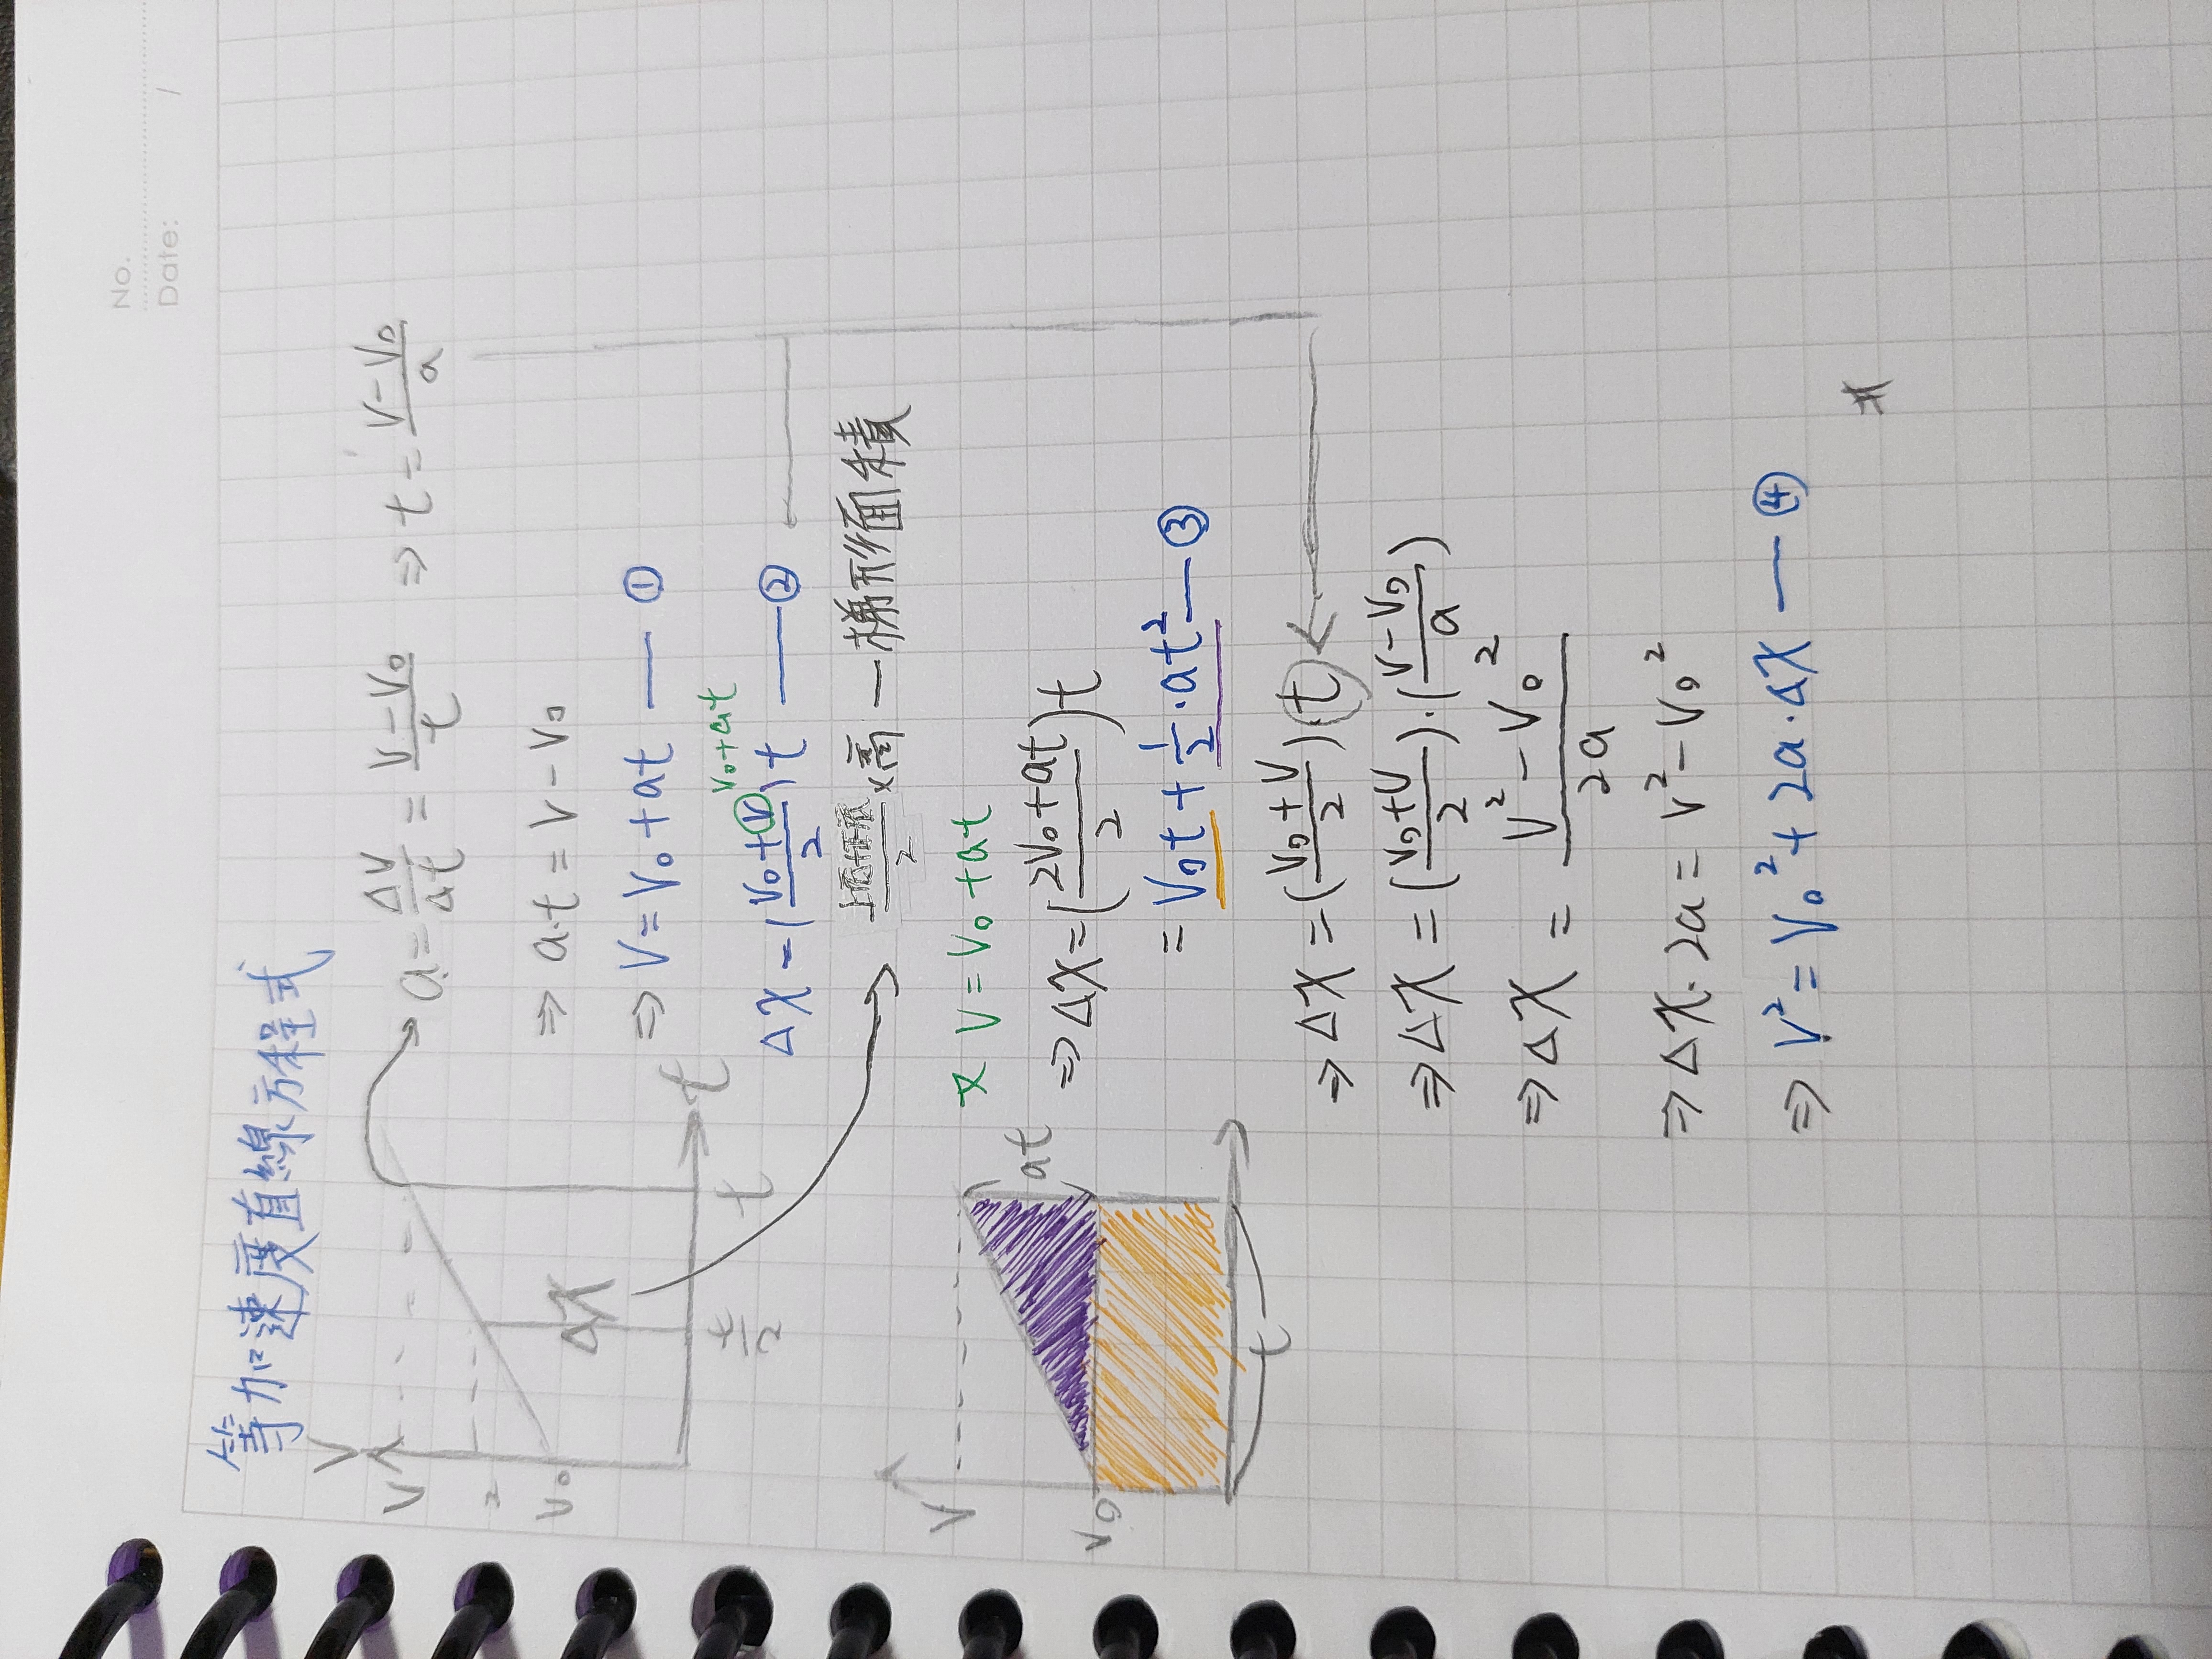 No.
Date: /
等加速度直線方程式
V
V
2
V₀
ΔX
t/2
t
t
a = ΔV/Δt = V-V₀/t ⇒ t = V-V₀/a
⇒ a·t = V - V₀
⇒ V = V₀ + at — ①
V₀+at
ΔX = (V₀+V/2) t — ②
上底+下底/2 × 高 — 梯形面積
V
V₀
at
t
又 V = V₀ + at
⇒ ΔX = (2V₀+at/2) t
= V₀t + 1/2·at² — ③
⇒ ΔX = (V₀+V/2)·t
⇒ ΔX = (V₀+V/2)·(V-V₀/a)
⇒ ΔX = V²-V₀²/2a
⇒ ΔX·2a = V²-V₀²
⇒ V² = V₀² + 2a·ΔX — ④
#